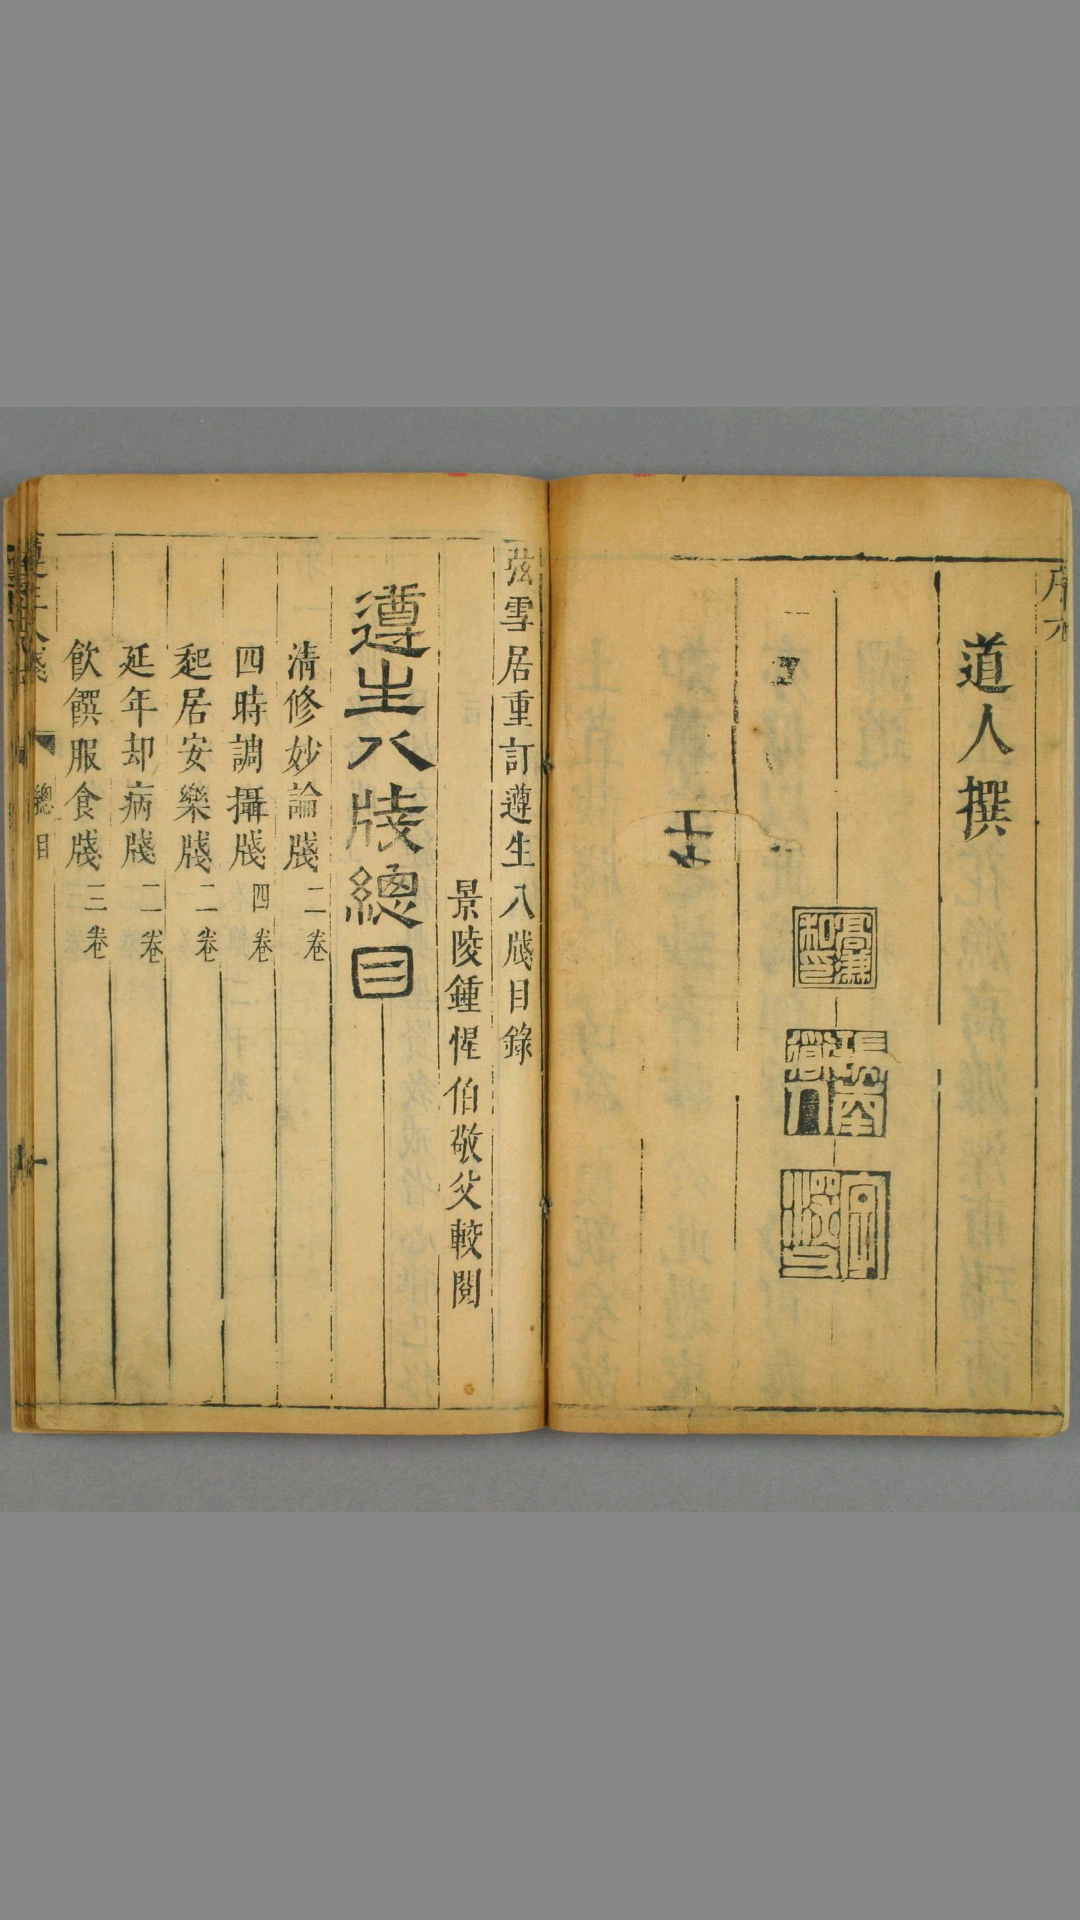 道人撰
弦雪居重訂遵生八牋目錄
景陵鍾惺伯敬父較閱
遵生八牋總目
清修妙論牋二卷
四時調攝牋四卷
起居安樂牋二卷
延年却病牋二卷
飲饌服食牋三卷
總目